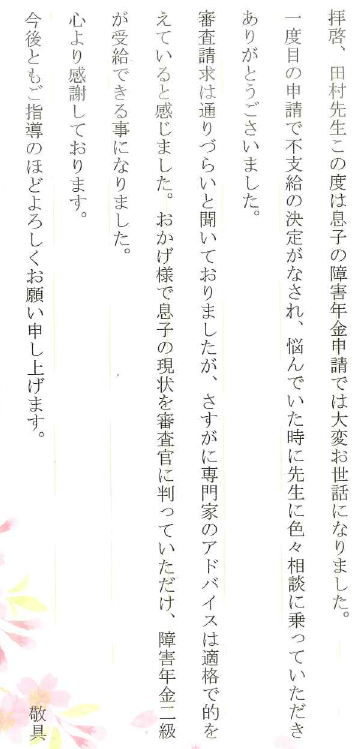 拝啓、田村先生この度は息子の障害年金申請では大変お世話になりました。
一度目の申請で不支給の決定がなされ、悩んでいた時に先生に色々相談に乗っていただき
ありがとうございました。
審査請求は通りづらいと聞いておりましたが、さすがに専門家のアドバイスは適格で的を
えていると感じました。おかげ様で息子の現状を審査官に判っていただけ、障害年金二級
が受給できる事になりました。
心より感謝しております。
今後ともご指導のほどよろしくお願い申し上げます。
敬具